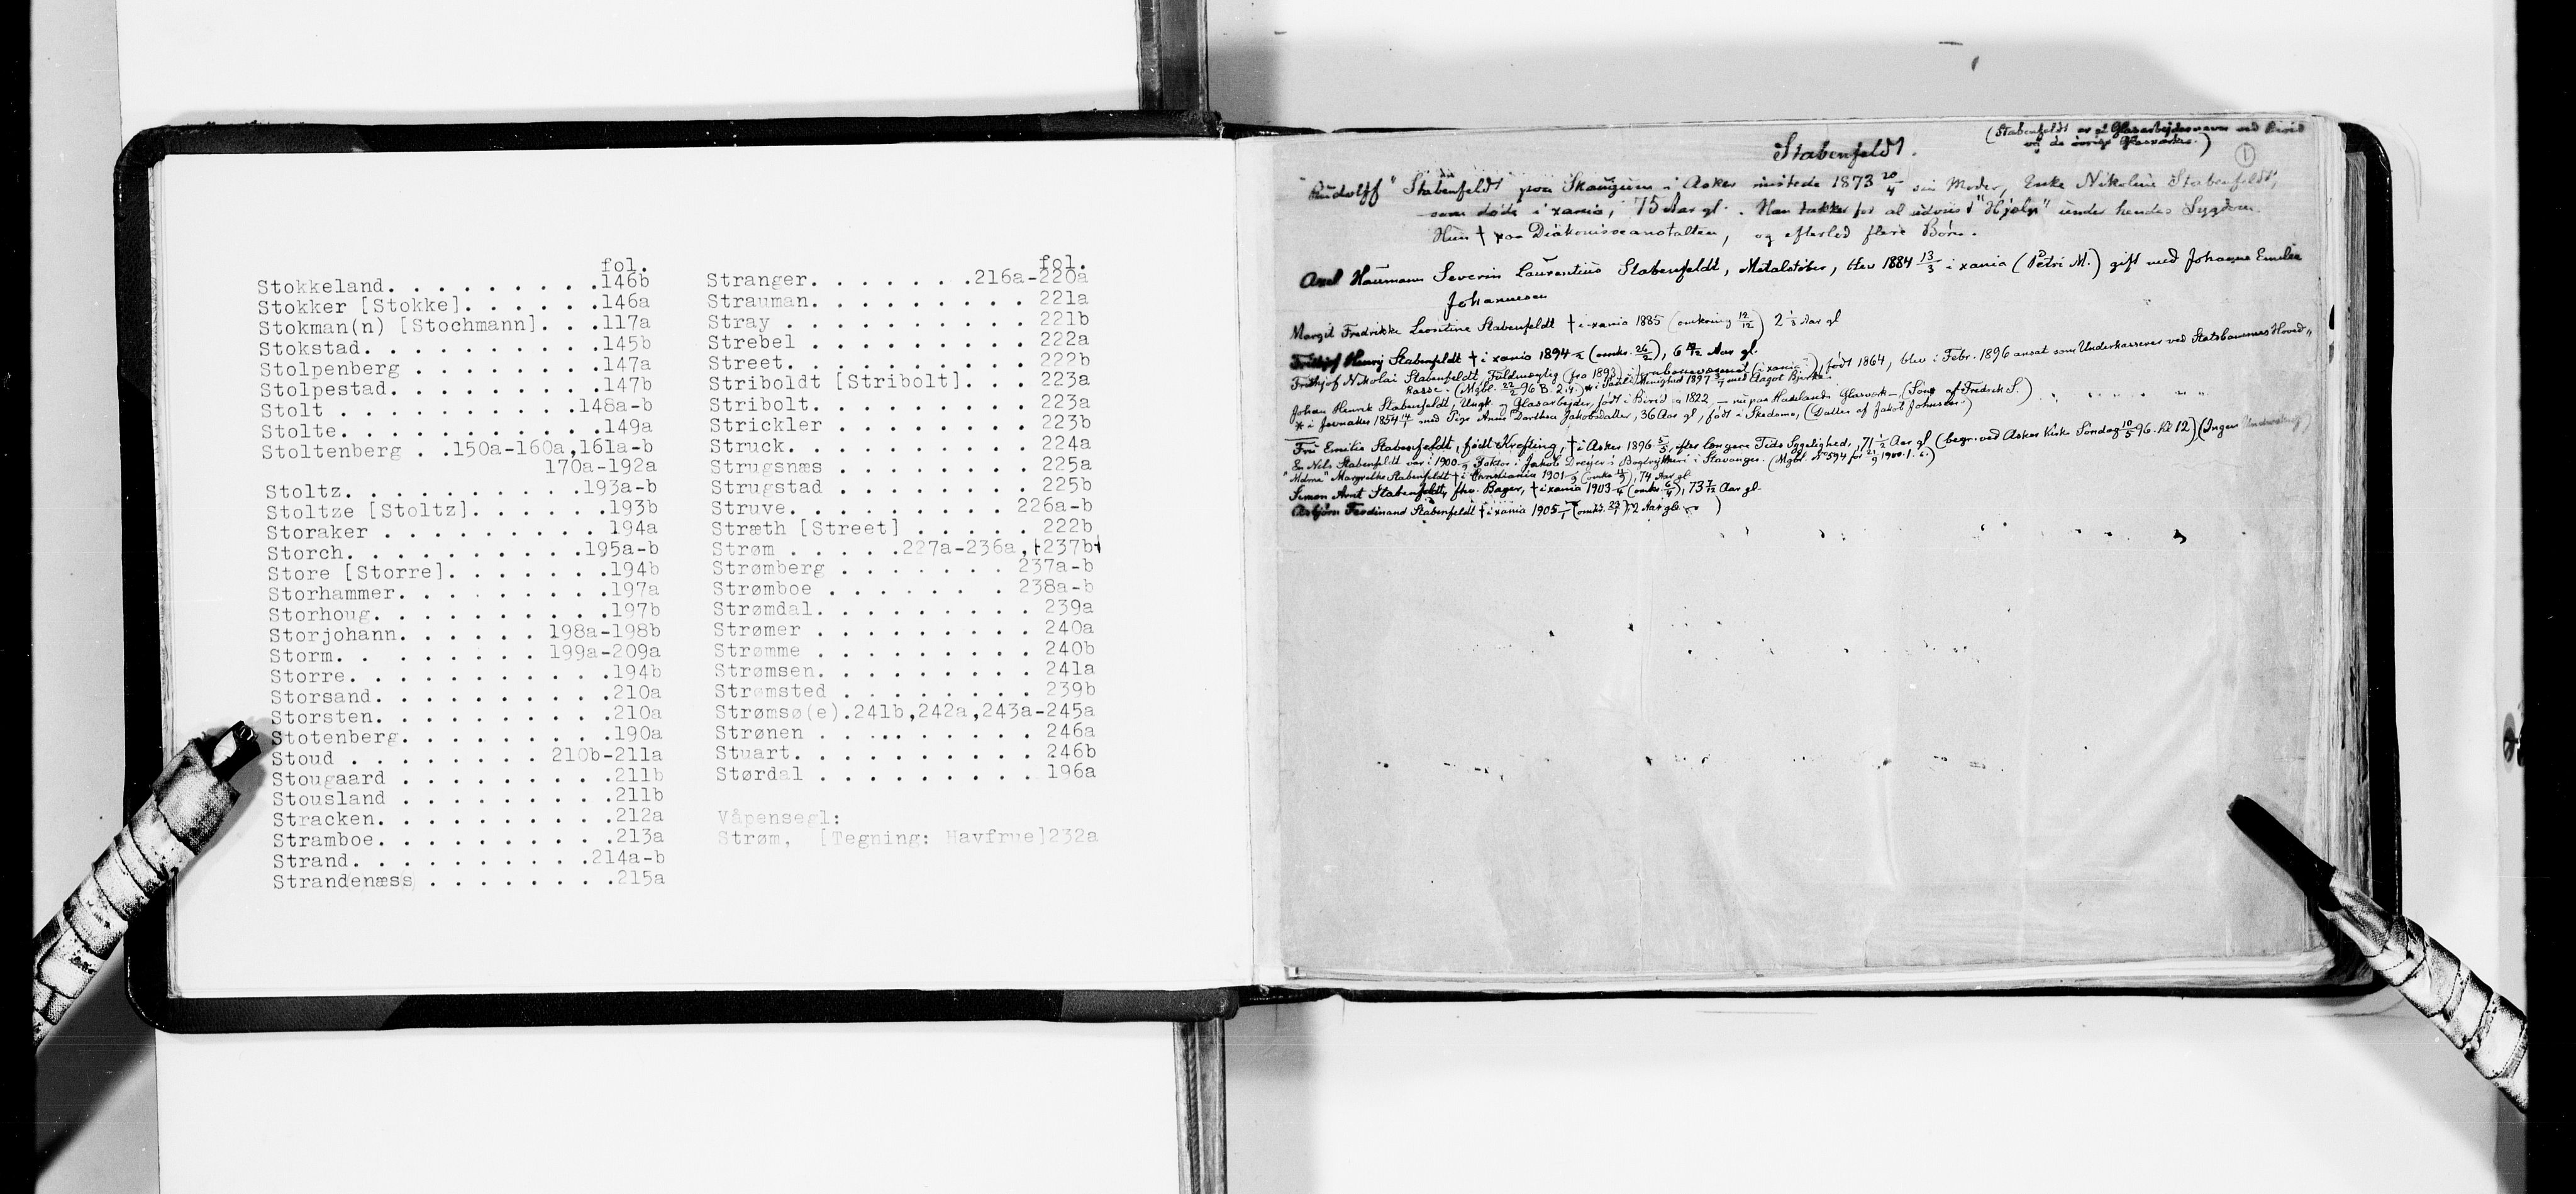 fol.
Stokkeland. . . . . . . . . .146b
Stokker [Stokke]. . . . . . .146a
Stokman(n) [Stochmann]. . .117a
Stokstad. . . . . . . . . . .145b
Stolpenberg . . . . . . . . .147a
Stolpestad. . . . . . . . . .147b
Stolt . . . . . . . . . . .148a-b
Stolte. . . . . . . . . . . .149a
Stoltenberg . .150a-160a,161a-b
170a-192a
Stoltz. . . . . . . . . . .193a-b
Stoltze [Stoltz]. . . . . . .193b
Storaker . . . . . . . . . 194a
Storch. . . . . . . . . . .195a-b
Store [Storre]. . . . . . . .194b
Storhammer. . . . . . . . . .197a
Storhoug. . . . . . . . . . .197b
Storjohann. . . . . . 198a-198b
Storm. . . . . . . . . 199a-209a
Storre. . . . . . . . . . . .194b
Storsand. . . . . . . . . . .210a
Storsten. . . . . . . . . . .210a
Stotenberg. . . . . . . . . .190a
Stoud . . . . . . . . 210b-211a
Stougaard . . . . . . . . . .211b
Stousland . . . . . . . . . .211b
Stracken. . . . . . . . . . .212a
Stramboe. . . . . . . . . . .213a
Strand. . . . . . . . . . .214a-b
Strandenæss . . . . . . . . .215a
fol.
Stranger. . . . . . .216a-220a
Strauman. . . . . . . . . . 221a
Stray . . . . . . . . . . . 221b
Strebel . . . . . . . . . . 222a
Street. . . . . . . . . . . 222b
Striboldt [Stribolt]. . . 223a
Stribolt. . . . . . . . . . 223a
Strickler . . . . . . . . . 223b
Struck. . . . . . . . . . . 224a
Strugsnæs . . . . . . . . . 225a
Strugstad . . . . . . . . . 225b
Struve. . . . . . . . . . 226a-b
Stræth [Street] . . . . . . 222b
Strøm . . . . .227a-236a,+237b+
Strømberg . . . . . . . . 237a-b
Strømboe . . . . . . . . 238a-b
Strømdal. . . . . . . . . . 239a
Strømer . . . . . . . . . . 240a
Strømme . . . . . . . . . . 240b
Strømsen. . . . . . . . . . 241a
Strømsted . . . . . . . . . 239b
Strømsø(e).241b,242a,243a-245a
Strønen . . . . . . . . . . 246a
Stuart. . . . . . . . . . . 246b
Størdal . . . . . . . . . . 196a
Våpensegl:
Strøm, [Tegning: Havfrue]232a
(Stabenfeldt er et Glasarbejdernavn ved Birid
og de øvrige Glasværker.)
1
Stabenfeldt.
"Rudolff" Stabenfeldt paa Skaugum i Asker mistede 1873 20/4 sin Moder, Enke Nikoline Stabenfeldt,
som døde i xania, 75 Aar gl. Han takker for al udvist "Hjælp" under hendes Sygdom.
Hun † paa Diakonisseanstalten, og efterlod flere Børn.
Axel Haumann Severin Laurentius Stabenfeldt, Metalstøber, blev 1884 13/3 i xania (Petri M.) gift med Johanne Emilie
Johannesen
Margit Fredrikke Leontine Stabenfeldt † i xania 1885 (omkring 12/12) 2 1/3 Aar gl
Fridtjof Henrij Stabenfeldt † i xania 1894 (omkr. 26/2), 6 Aar gl.
Frithjof Nikolai Stabenfeldt, Fuldmægtig (fra 1893) i (i xania), født 1864, blev i Febr. 1896 ansat som Underkasserer ved Statsbanernes Hoved-
kasse. (Mgbl. 22/2 96 B. 2.) * i Pauli Menighed 1897 med Aagot Bjerke.
Johan Henrik Stabenfeldt, Ungk. og Glasarbejder, født i Birid 1822, – nu paa Hadelands Glasværk – (Søn af Fredrik S.)
* i Jevnaker 1854 14/ med Pige Anne Dorthea Jakobsdatter, 36 Aar gl, født i Skedsmo, (Datter af Jakob Johnsen)
Fru Emilie Stabenfeldt, født Krefting, † i Asker 1896 5/5, efter længere Tids Sygelighed, 71 1/2 Aar gl (begr. ved Asker Kirke Søndag 10/5 96. Kl 12) (Ingen
En Nils Stabenfeldt var i 1900 Faktor i Jakob Dreyers Bogtrykkeri i Stavanger. (Mgbl. № 594 for 21/9 1900.)
"Mdme" Margrethe Stabenfeldt † i Christiania 1901 (omkr.), 74 Aar gl.
Simon Arnt Stabenfeldt, fhv. Bager, † i xania 1903 (omkr. 6/4), 73 Aar gl.
Asbjørn Ferdinand Stabenfeldt † i xania 1905 (omkr.), 2 Aar gl.